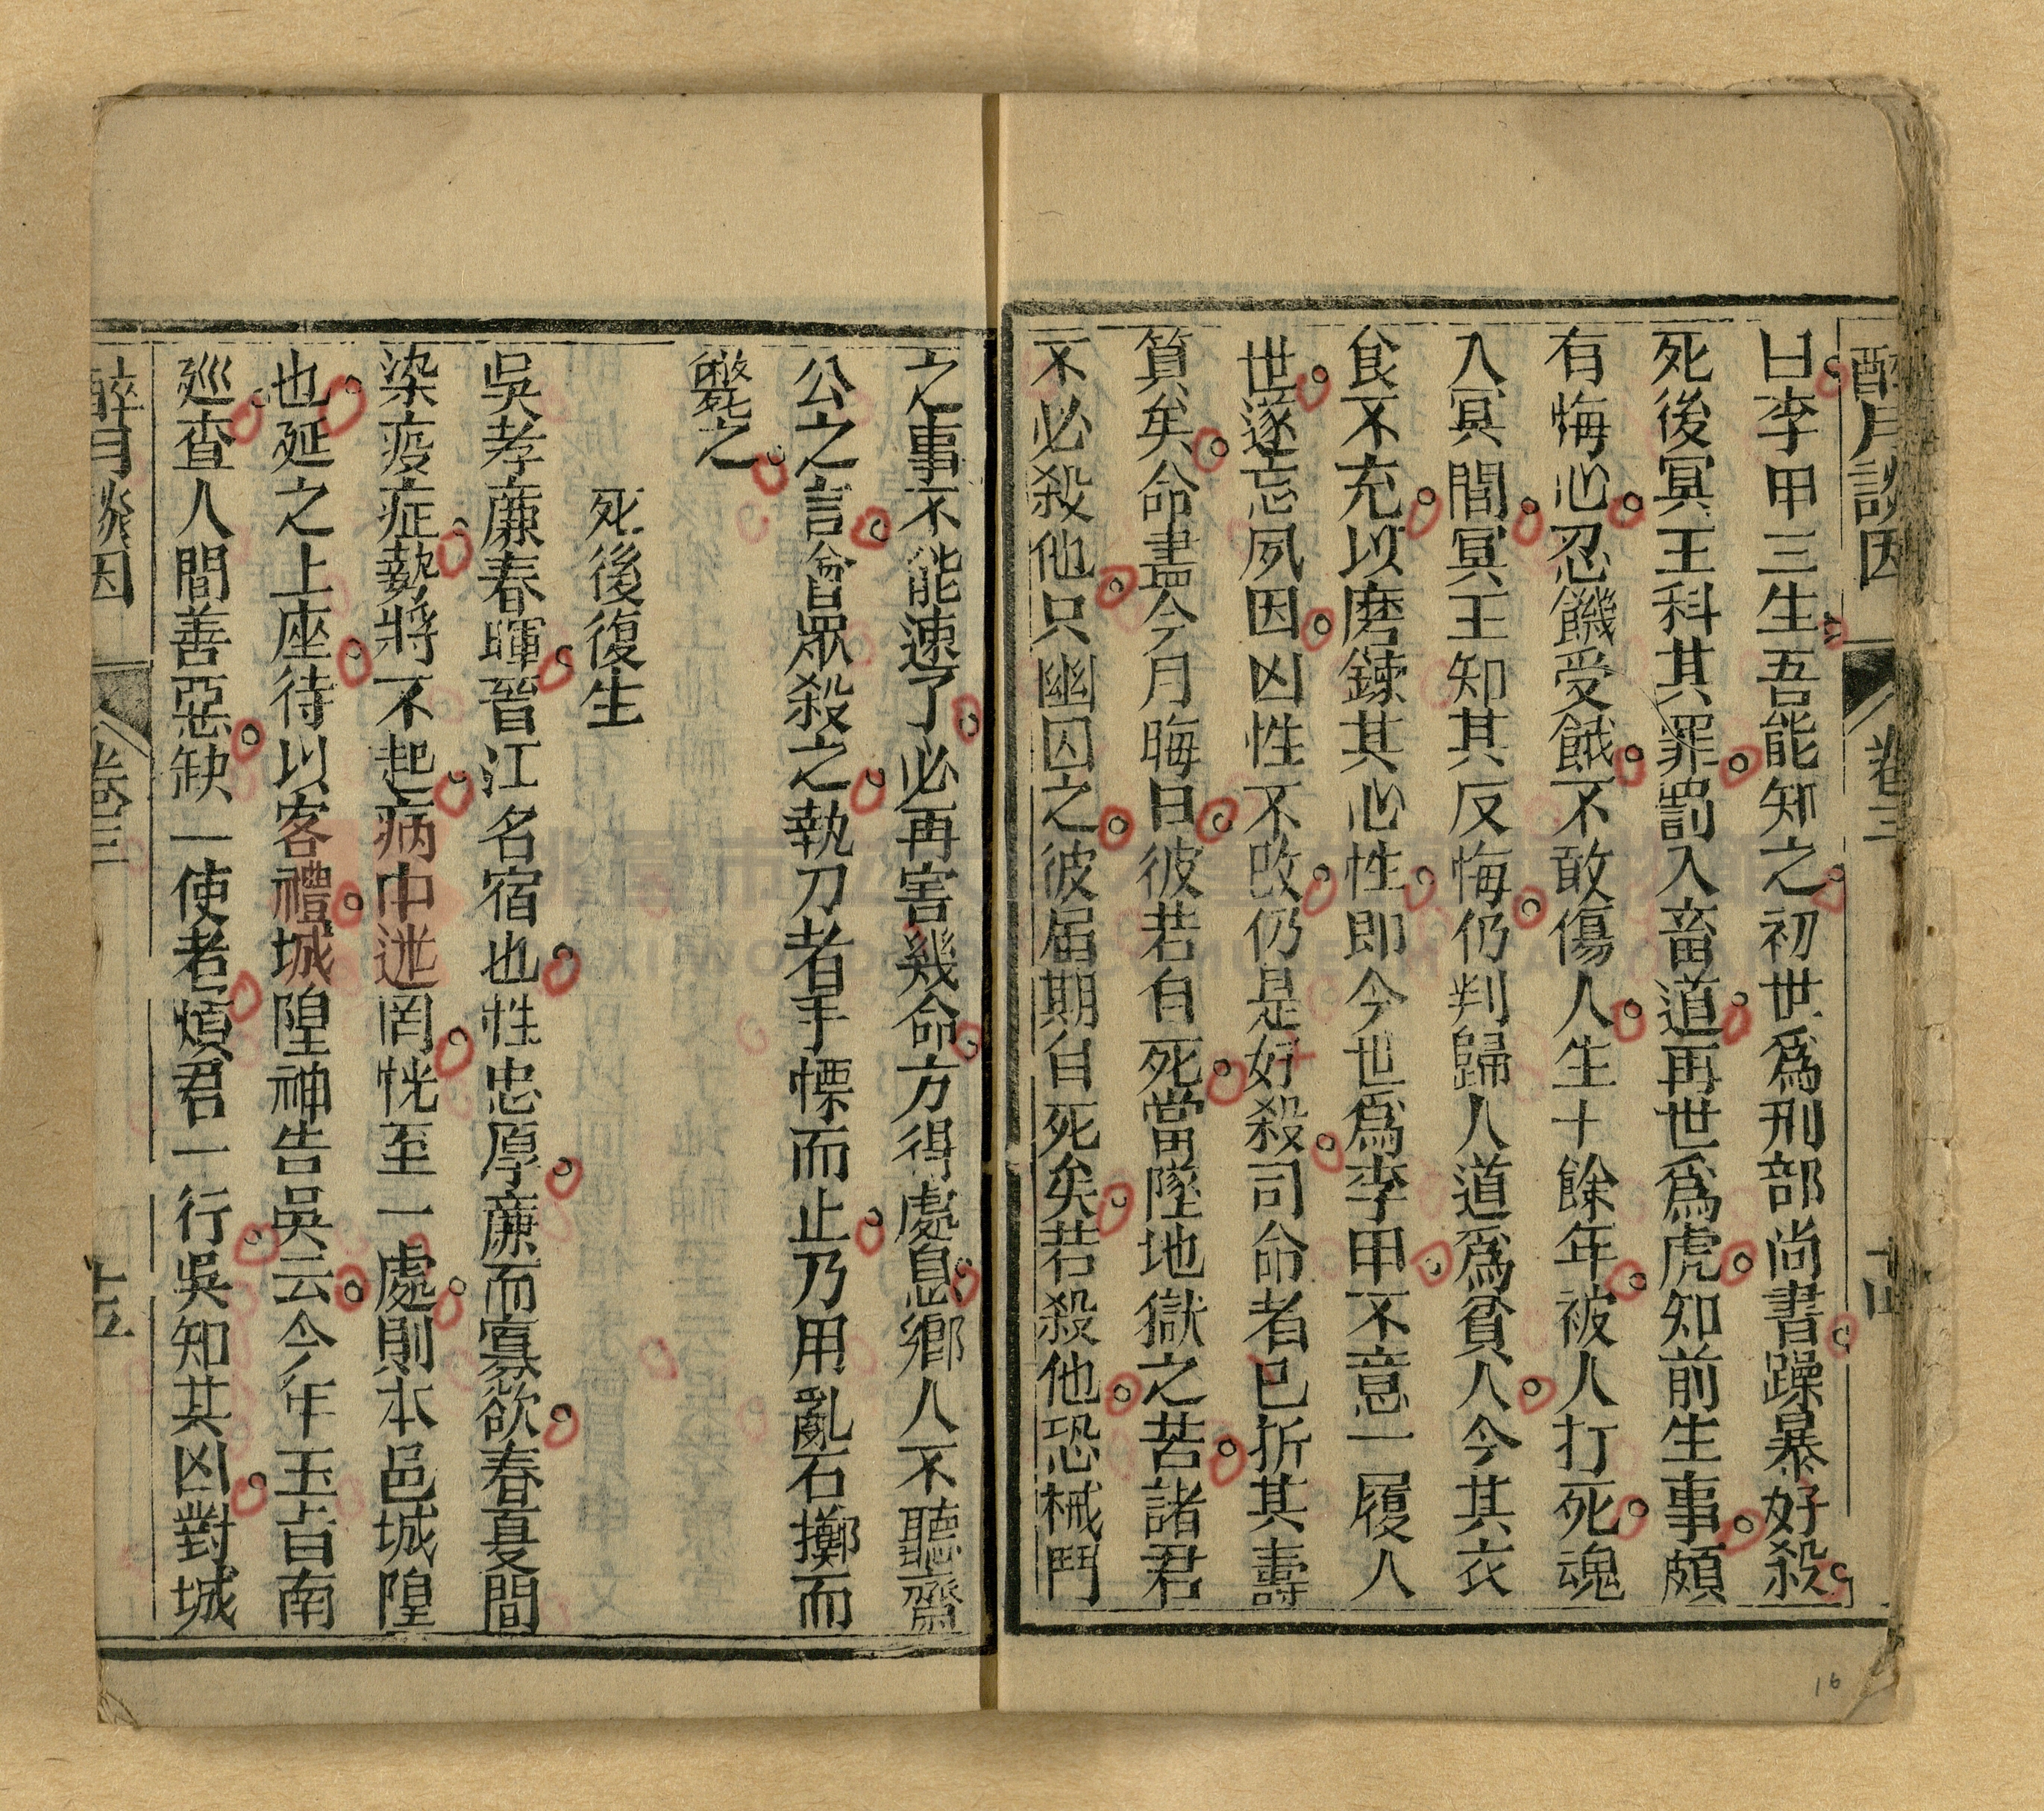 醉月談因 卷三 十四
曰李甲三生吾能知之初世爲刑部尚書躁暴好殺
死後冥王科其罪罰入畜道再世爲虎知前生事頗
有悔心忍饑受餓不敢傷人生十餘年被人打死魂
入冥間冥王知其反悔仍判歸人道爲貧人今其衣
食不充以磨鍊其心性即今世爲李甲不意一履人
世遂忘夙因凶性不改仍是好殺司命者已折其壽
算矣命盡今月晦日彼若自死當墜地獄之苦諸君
不必殺他只幽囚之彼届期自死矣若殺他恐械鬥
之事不能速了必再害幾命方得處息鄉人不聽齋
公之言會眾殺之執刀者手慄而止乃用亂石擲而
斃之
死後復生
吳孝廉春暉晉江名宿也性忠厚廉而寡欲春夏間
染疫症勢將不起病中迷罔恍至一處則本邑城隍
也延之上座待以客禮城隍神告吳云今年玉旨南
巡查人間善惡缺一使者煩君一行吳知其凶對城
醉月談因 卷三 十五
16